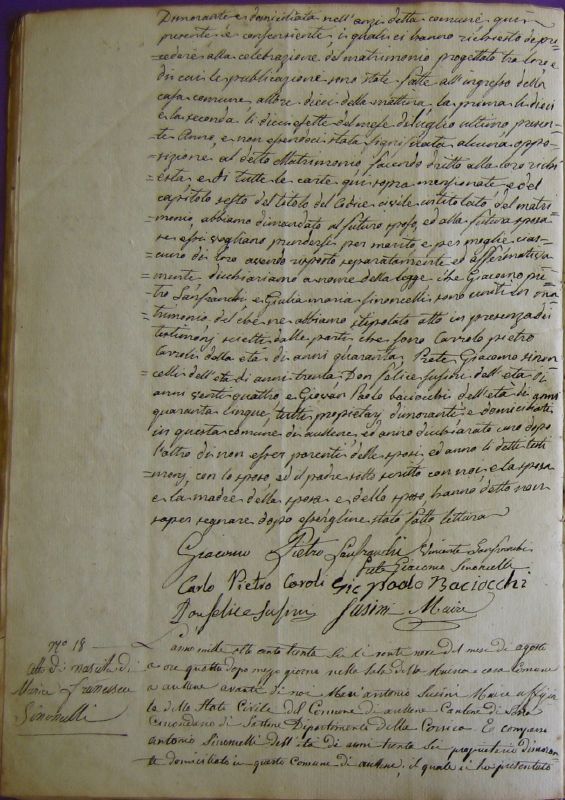 Dimorante e domiciliata nell'anzi detta comune qui
presente e consenziente, i quali ci hanno richiesto di pro-
=cedere alla celebrazione del matrimonio progettato tra loro e
di cui le publicazione sono state fatte all'ingresso della
casa comune, all'ore dieci della mattina, la prima li dieci
e la seconda li diecisette del mese di luglio ultimo, presen-
te Anno, e non essendoci stata significata alcuna oppo-
=sizione, al detto Matrimonio, facendo dritto alla loro richi-
=esta e di tutte le carte qui sopra menzionate e del
capitolo sesto del titolo del Codice civile intitolato del matri-
=monio, abbiamo dimandato al futuro sposo, ed alla futura sposa
se essi vogliano prendersi per marito e per moglie cias-
=cuno di loro avendo risposto separatamente ed affermativa-
=mente dichiariamo a nome della legge che Giacomo pie-
tro Sanfranchi e Giulia maria simoncelli sono uniti in ma-
=trimonio del che ne abbiamo stipolato atto in presenza dei
testimonj scielti dalle parti che sono Carrolo pietro
Carroli dalla età di anni quaranta, Prete Giacomo simon-
=celli dell'età di anni trenta, Don felice susini dell'età di
anni venti quattro e Giovan Paolo baciocchi dell'età di anni
quaranta cinque, tutti proprietarj dimoranti e domiciliati
in questa comune di aullene, ed anno dichiarato uno dopo
l'altro di non esser parenti delle sposi, ed anno li detti testi-
=monj, con lo sposo ed il padre sotto scritto con noi e la sposa
e la madre della sposa e dello sposo hanno detto non
saper segnare dopo essergline stato fatto lettura
Giacomo Pietro Sanfranchi Vincente Sanfranchi
Prete Giacomo Simoncelli
Carlo Pietro Caroli Gio Paolo Baciocchi
Don felice Susini Susini Maire
No 18
Atto di nascita di
Maria Francesca
Simonelli
L'anno mille otto cento trenta li ventinove del mese di agosto
a ore quattro dopo mezo giorno nella sala della casa Comune
a aullene avante di noi Maire uffizia
le dello Stato Civile del Comune di aullene Cantone di
Circondario di Sartene Dipartimento della Corsica. È comparso
antonio Simonelli dell'età di anni trenta sei proprietario dimoran-
te domiciliato in questo Comune di aullene, il quale ci ha presentato